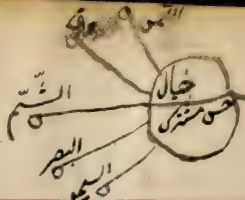 الذوق
خيال
حس مشترك
الشّمّ
البصر
السمع